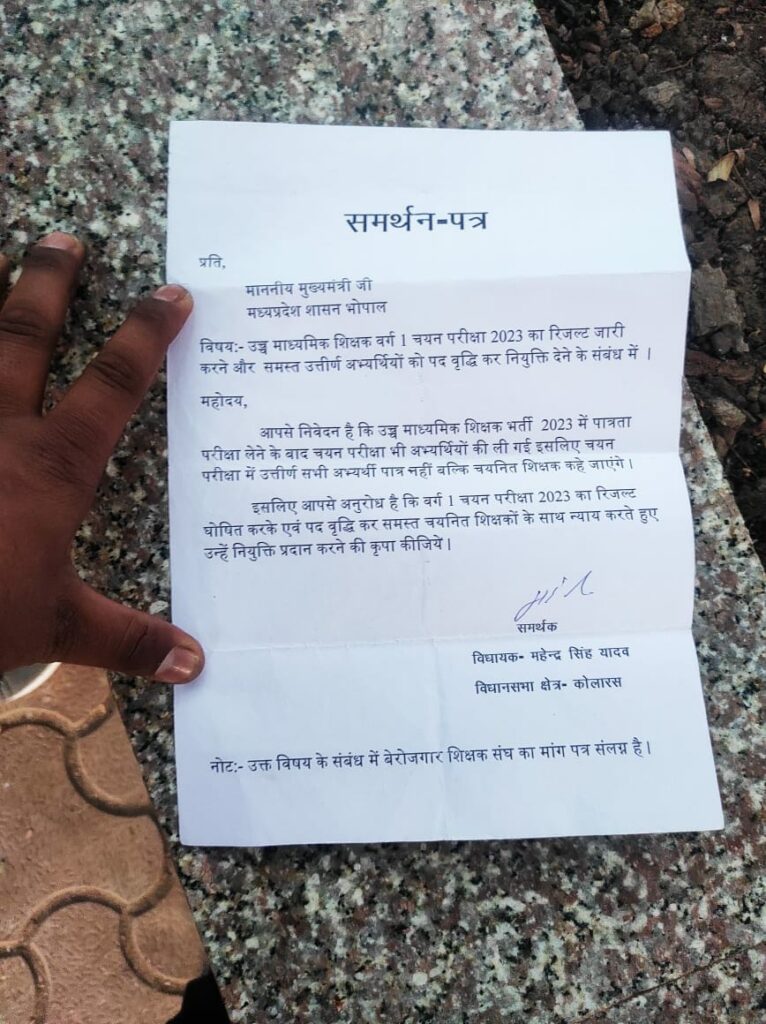 समर्थन-पत्र
प्रति,
माननीय मुख्यमंत्री जी
मध्यप्रदेश शासन भोपाल
विषय:- उच्च माध्यमिक शिक्षक वर्ग 1 चयन परीक्षा 2023 का रिजल्ट जारी
करने और समस्त उत्तीर्ण अभ्यर्थियों को पद वृद्धि कर नियुक्ति देने के संबंध में ।
महोदय,
आपसे निवेदन है कि उच्च माध्यमिक शिक्षक भर्ती 2023 में पात्रता
परीक्षा लेने के बाद चयन परीक्षा भी अभ्यर्थियों की ली गई इसलिए चयन
परीक्षा में उत्तीर्ण सभी अभ्यर्थी पात्र नहीं बल्कि चयनित शिक्षक कहे जाएंगे ।
इसलिए आपसे अनुरोध है कि वर्ग 1 चयन परीक्षा 2023 का रिजल्ट
घोषित करके एवं पद वृद्धि कर समस्त चयनित शिक्षकों के साथ न्याय करते हुए
उन्हें नियुक्ति प्रदान करने की कृपा कीजिये ।
समर्थक
विधायक- महेन्द्र सिंह यादव
विधानसभा क्षेत्र- कोलारस
नोट:- उक्त विषय के संबंध में बेरोजगार शिक्षक संघ का मांग पत्र संलग्न है ।